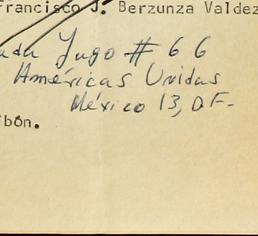 Francisco J. Berzunza Valdez
ada Jugo # 66
Américas Unidas
México 13, DF-
ibón.